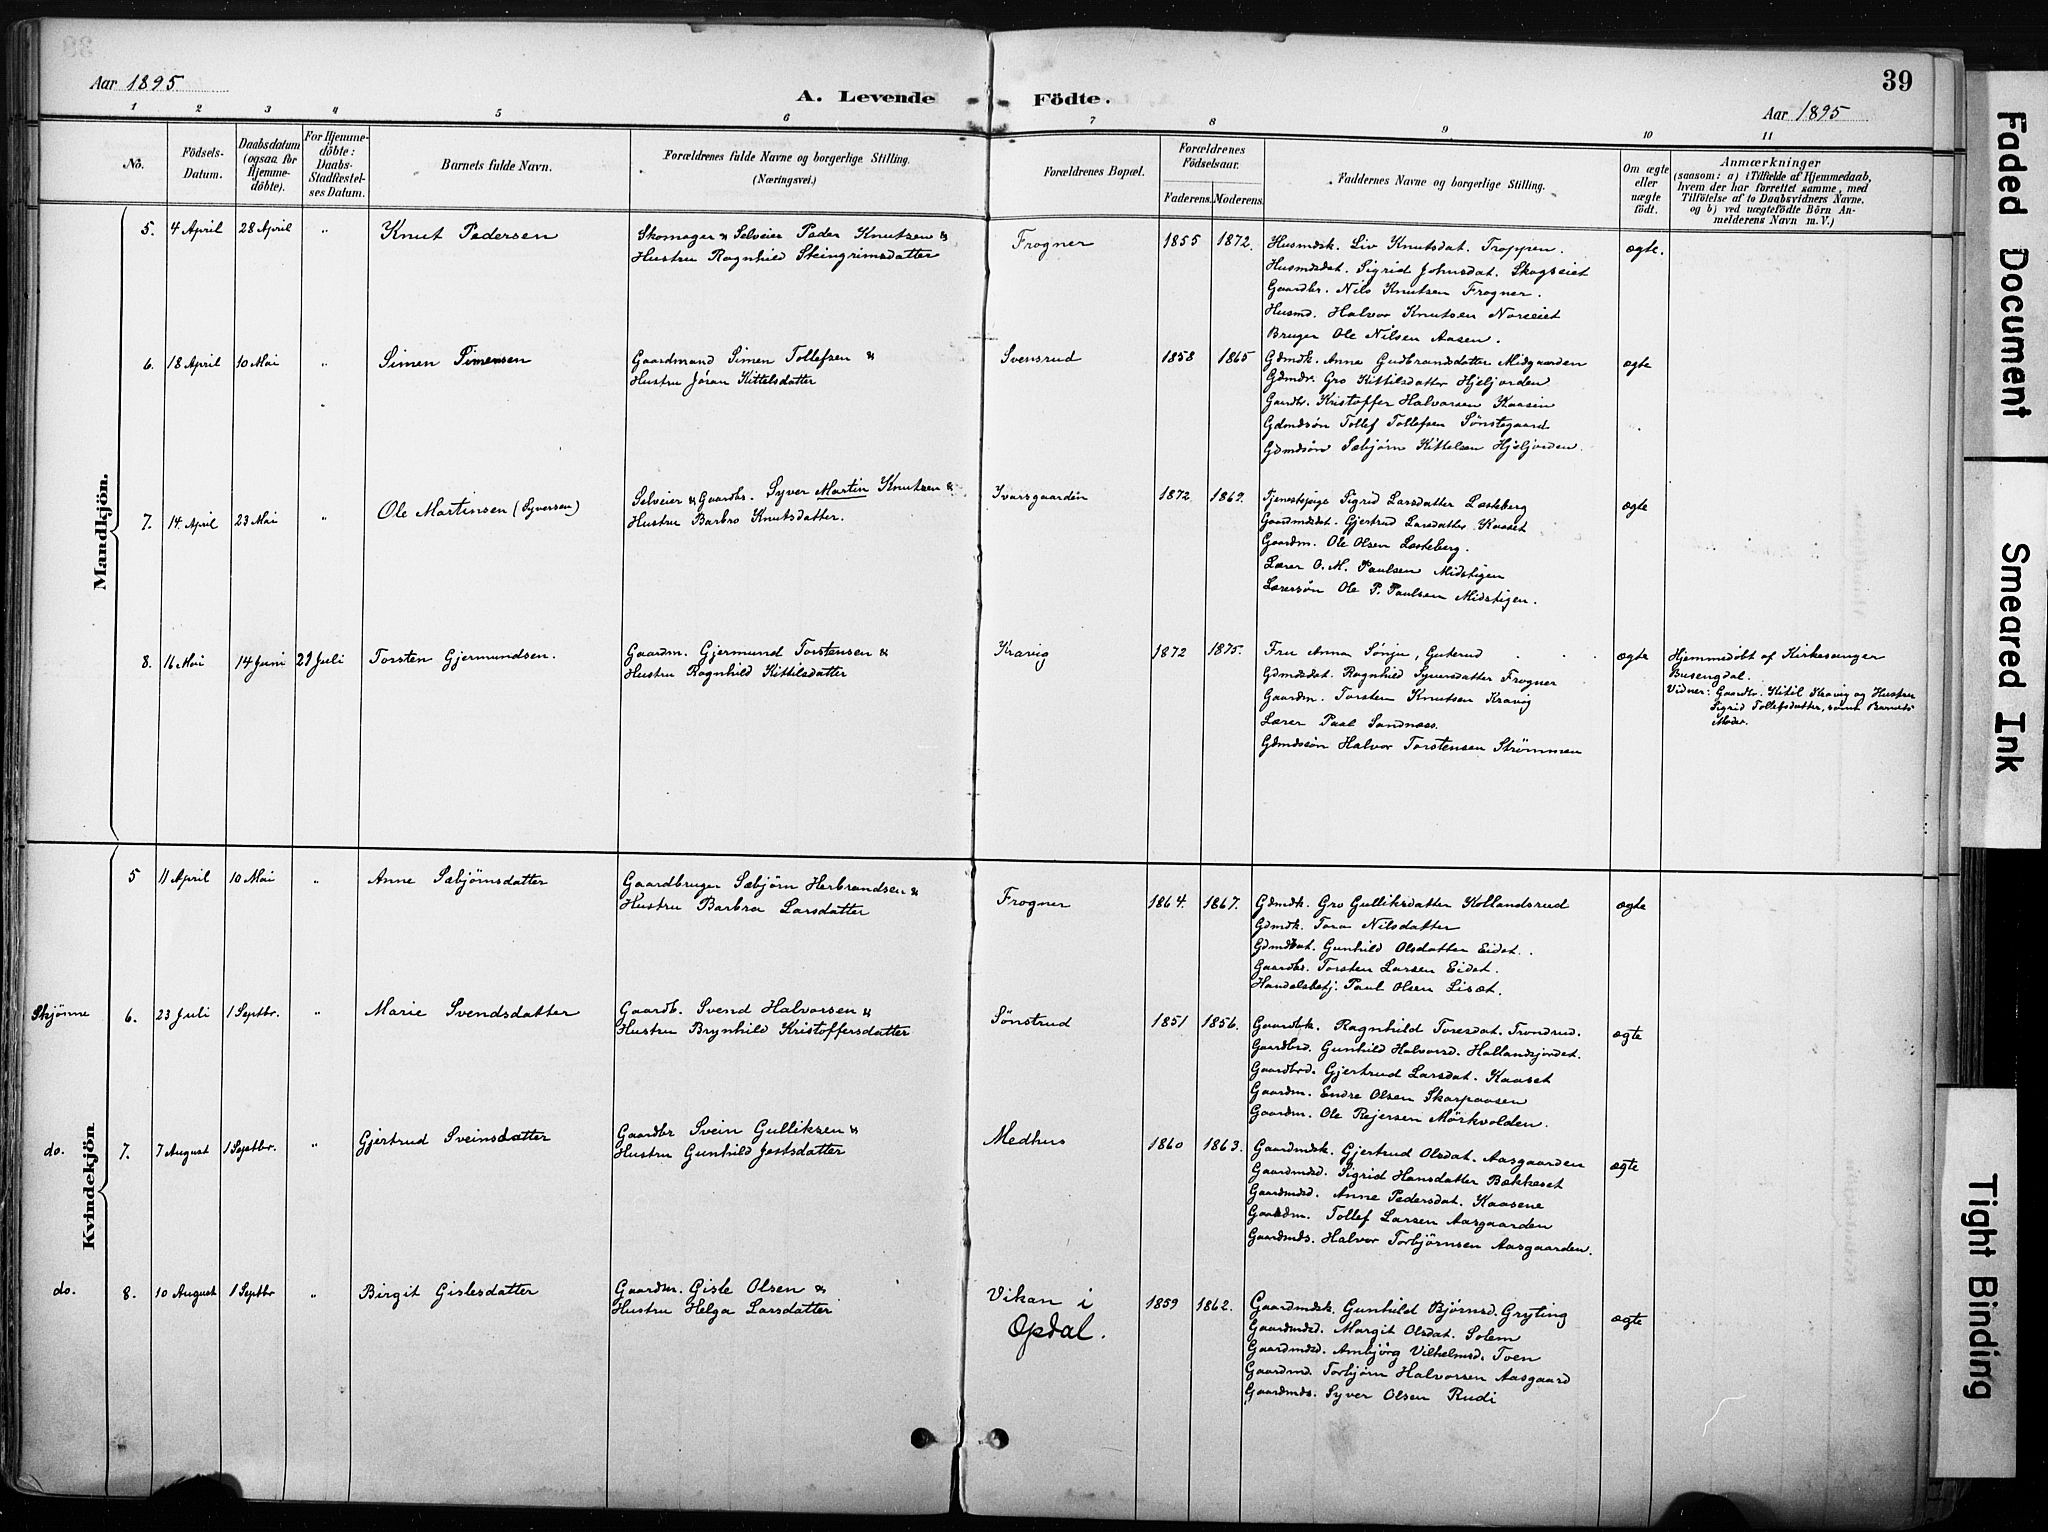 Aar 1895
A. Levende Födte.
39
Aar 1895
1 2 3 4 5 6 7 8 9 10 11
No.
Födsels-Datum.
Daabsdatum (ogsaa for Hjemme-döbte).
For Hjemme-döbte: Daabs-Stadfæstel-ses Datum.
Barnets fulde Navn.
Forældrenes fulde Navne og borgerlige Stilling. (Næringsvei.)
Forældrenes Bopæl.
Forældrenes Födselsaar.
Faderens. Moderens.
Faddernes Navne og borgerlige Stilling.
Om ægte eller uægte födt.
Anmærkninger
(saasom: a) i Tilfælde af Hjemmedaab, hvem der har forrettet samme, med Tilföielse af to Daabsvidners Navne, og b) ved uægtefödte Börn An-melderens Navn m. V.)
Mandkjön.
5. 4 April 28 April " Knut Pedersen
Skomager & Selveier Peder Knutsen &
Hustru Ragnhild Steingrimsdatter
Frogner 1855 1872.
Husmdsk. Liv Knutsdat. Troppen.
Husmdsdat. Sigrid Johnsdat. Skogseiet
Gaardbr. Nils Knutsen Frogner.
Husmd. Halvor Knutsen Norseiet
Bruger Ole Nilsen Aasen.
ægte.
6. 18 April 10 Mai " Simen Simensen
Gaardmand Simen Tollefsen &
Hustru Jöran Kittelsdatter
Svensrud 1858 1865
Gdmdk. Anne Gudbrandsdatter Midgaarden
Gdmdr. Gro Kittilsdatter Hjeljorden
Gaardbr. Kristoffer Halvorsen Kaasin
Gdmdsön Tollef Tollefsen Sønstegaard
Gdmdsön Sæbjørn Kittelsen Hjeljorden.
ægte
7. 14 April 23 Mai " Ole Martinsen (Syversen)
Selveier & Gaardbr. Syver Martin Knutsen &
Hustru Barbro Knutsdatter.
Ivarsgaardin 1872 1869.
Tjenestepige Sigrid Larsdatter Læsteberg
Gaardmdsdat. Gjertrud Larsdatter Kaaset
Gaardm. Ole Olsen Læsteberg.
Lærer O. M. Paulsen Midstigen
Lærersøn Ole P. Paulsen Midstigen.
ægte
8. 16 Mai 14 Juni 29 Juli Torsten Gjermundsen.
Gaardm. Gjermund Torstensen &
Hustru Ragnhild Kittilsdatter
Kravig 1872 1875.
Fru Anna Sønju, Guterud
Gdmdsdat. Ragnhild Syversdatter Frogner
Gaardm. Torsten Knutsen Kravig
Lærer Paal Sandnæs.
Gdmdssön Halvor Torstensen Strömmen
ægte
Hjemmedöbt af Kirkesanger
Busengdal.
Vidner: Gaardbr. Kitil Kravig og Hustru
Sigrid Tollefsdatter, samt Barnets
Moder.
Kvindekjön
5 11 April 10 Mai " Anne Sæbjörnsdatter
Gaardbruger Sæbjörn Herbrandsen &
Hustru Barbra Larsdatter
Frogner 1864. 1867.
Gdmdk. Gro Gulliksdatter Kollandsrud
Gdmdk. Tora Nilsdatter
Gdmdsat. Gunhild Olsdatter Eidet.
Gaardbr. Torsten Larsen Eidet.
Handelsbetj. Paul Olsen Liset.
ægte
Skjönne 6. 23 Juli 1 Septbr. " Marie Svendsdatter
Gaardb. Svend Halvorsen &
Hustru Brynhild Kristoffersdatter
Sönstrud 1851 1856.
Gaardbk. Ragnhild Toresdat. Trondrud.
Gaardbrd. Gunhild Halvorsd. Hallandsjordet.
Gaardbrd. Gjertrud Larsdat. Kaaset
Gaardm. Endre Olsen Skarpaasen
Gaardm. Ole Reiersen Mörkvolden.
ægte
do. 7. 7 August 1 Septbr. " Gjertrud Sveinsdatter
Gaardbr Svein Gulliksen &
Hustru Gunhild Jostsdatter
Medhus 1860 1863.
Gaardmdsk. Gjertrud Olsdat. Aasgaarden
Gaardmdsd. Sigrid Hansdatter Bækkeset
Gaardmdsd. Anne Pedersdat. Kaasene
Gaardm. Tollef Larsen Aasgaarden
Gaardmds. Halvor Torbjörnsen Aasgaarden.
ægte
do. 8. 10 August 1 Septbr " Birgit Gislesdatter
Gaardm. Gisle Olsen &
Hustru Helga Larsdatter
Vikan i
Opdal. 1859 1862.
Gaardmdsk. Gunhild Bjørnsd. Gryting
Gaardmdsd. Margit Olsdat. Solem
Gaardmdsd. Ambjörg Vilhelmsd. Tven
Gaardmd. Torbjörn Halvorsen Aasgaard
Gaardmds. Syver Olsen Rudi
ægte
Faded Document
Smeared Ink
Tight Binding